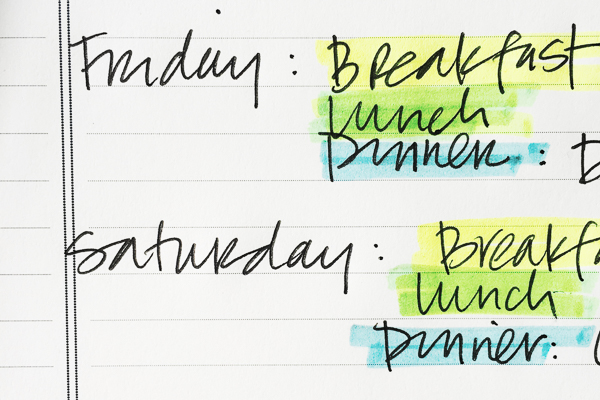 Friday : Breakfast
Lunch
Dinner : D
Saturday : Breakfa
Lunch
Dinner: